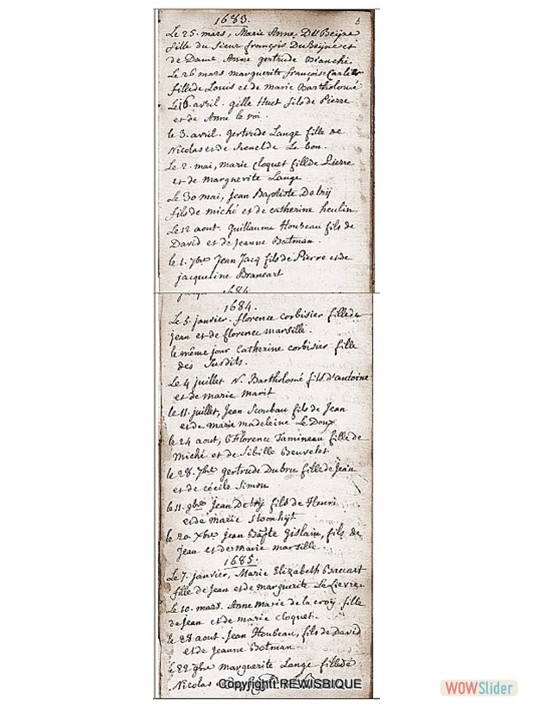 1683.
Le 25. mars, Marie Anne DuBeÿne
fille du Sieur françois DuBeÿne et
de Dame Anne gertrude Bianchi
Le 26 mars marguerite françoise Carlier
fille de Louis et de marie Bartholomé
Le 16 avril. gille Huet fils de Pierre
et de Anne le roi.
le 3. avril. gertride Lange fille de
Nicolas et de Le bon.
Le 2. mai, marie cloquet fille de Pierre
et de marguerite Lange
Le 30 mai, jean Baptiste Detrij
fils de miché et de catherine heulin
Le 12 aout. guillaume Houbeau fils de
David et de jeanne Batman.
le 1. 7bre Jean Jacq fils de Pierre et de
jacqueline Brancart
1684
1684.
Le 5. janvier. florence corbisier fille de
jean et de florence marsille.
le même jour Catherine corbisier fille
des susdits.
Le 4 juillet N. Bartholomé fils d'antoine
et de marie marit
le 11. juillet, Jean Scoubau fils de Jean
et de marie madeleine Le Doux
le 24 aout, Florence Tamineau fille de
Miché et de Sibille Beuvelet
le 28. 7bre gertrude Dubru fille de Jean
et de cécile Simon
le 11. 9bre Jean Detrij fils de Henri
et de marie
le 20 Xbre jean Bapte Gislain, fils de
Jean et de Marie marsille
1685.
Le 7. janvier, Marie Elizabeth Bacuart
fille de Jean et de marguerite Le Lievre.
Le 10. mars. Anne marie de la croÿ fille
de jean et de marie cloquet.
le 28 aout Jean Houbeau, fils de David
et de jeanne Batman
le 22 9bre marguerite Lange fille de
Nicolas
Copyright REWISBIQUE
WOWSlider